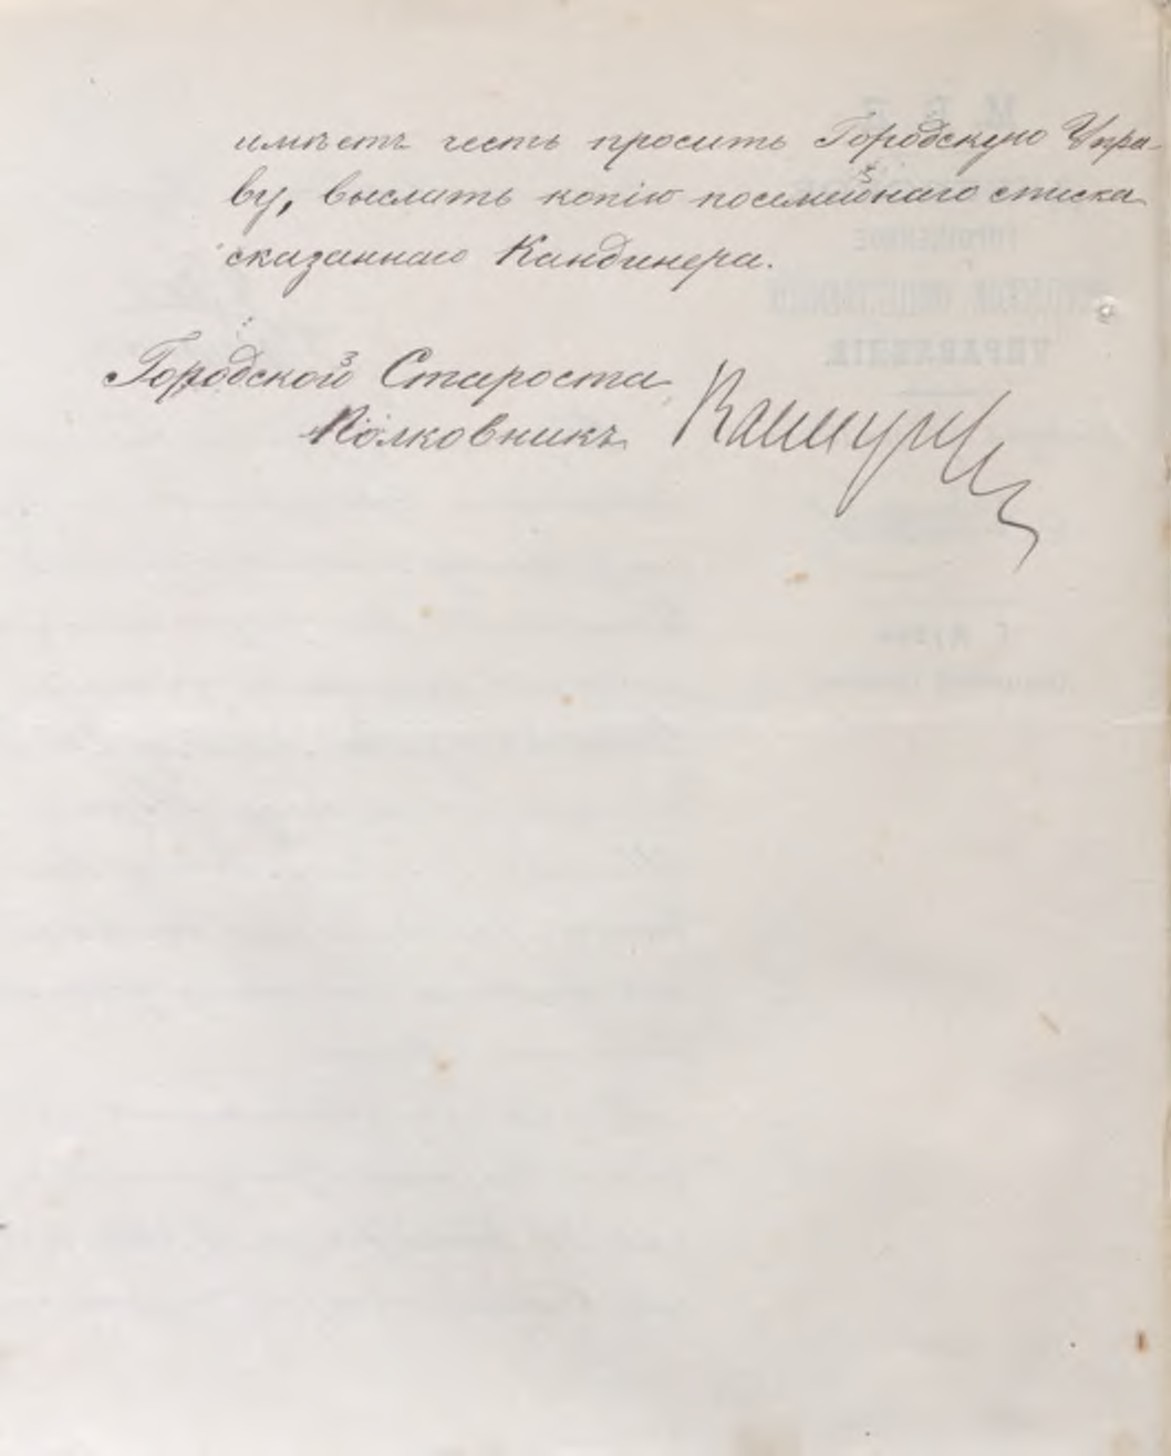 имѣетъ честь просить Городскую Упра-
ву, выслать копію посемейнаго списка
сказаннаго Кандинера.
Городской Староста,
Полковникъ